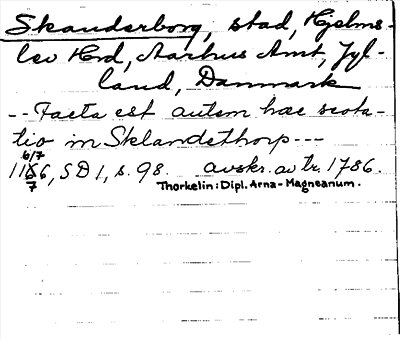 Skanderborg, stad, Hjelms-
lev Hrd, Aarhus Amt, Jyl-
land, Danmark
-- Facta est autem hæc scota-
tio in Sklandsthorp ---
6/7
1186, SD 1, s. 98. avskr. av tr. 1786.
7 Thorkelin: Dipl. Arna-Magneanum.